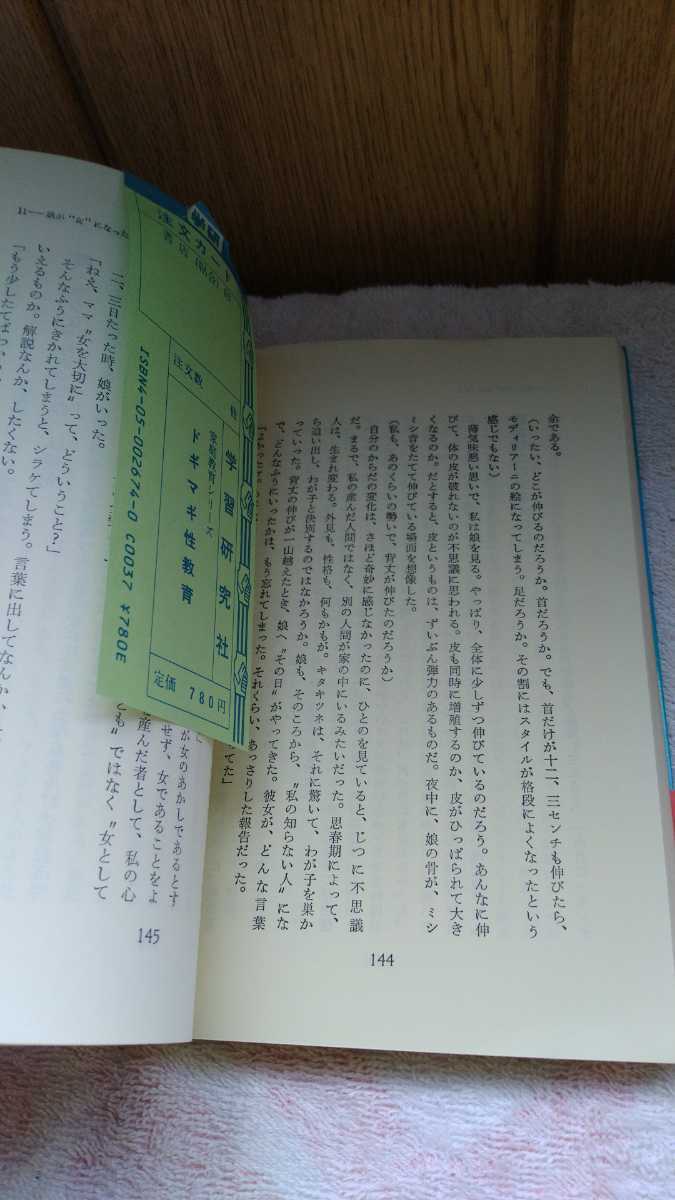 余である。
(いったい、どこが伸びるのだろうか。首だろうか。でも、首だけが十二、三センチも伸びたら、
モディリアーニの絵になってしまう。足だろうか。その割にはスタイルが格段によくなったという
感じでもない)
薄気味悪い思いで、私は娘を見る。やっぱり、全体に少しずつ伸びているのだろう。あんなに伸
びて、体の皮が破れないのが不思議に思われる。皮も同時に増殖するのか、皮がひっぱられて大き
くなるのか。だとすると、皮というものは、ずいぶん弾力のあるものだ。夜中に、娘の骨が、ミシ
ミシ音をたてて伸びている場面を想像した。
(私も、あのくらいの勢いで、背丈が伸びたのだろうか)
自分のからだの変化は、さほど奇妙に感じなかったのに、ひとのを見ていると、じつに不思議
だ。まるで、私の産んだ人間ではなく、別の人間が家の中にいるみたいだった。思春期によって、
人は、生まれ変わる。外見も、性格も、何もかもが。キタキツネは、それに驚いて、わが子を巣か
ら追い出し、わが子と決別するのではなかろうか。娘も、そのころから、〝私の知らない人〟にな
っていった。背丈の伸びが一山越えたとき、娘へ〝その日〟がやってきた。彼女が、どんな言葉
で、どんなふうにいったかは、もう忘れてしまった。それくらい、あっさりした報告だった。
ってた」
144
学研
注文カード
書店(帖合)印
注文数
冊
学習研究社
家庭教育シリーズ
ドギマギ性教育
定価 780円
ISBN4-05-002674-0 C0037 ¥780E
II——娘が〝女〟になった
二、三日たった時、娘がいった。
「ねえ、ママ〝女を大切に〟って、どういうこと?」
そんなふうにきかれてしまうと、シラケてしまう。言葉に出してなんか、
いえるものか。解説なんか、したくない。
「もう少したてば
が女のあかしであるとす
せず、女であることをよ
産んだ者として、私の心
とも〟ではなく〝女として
145